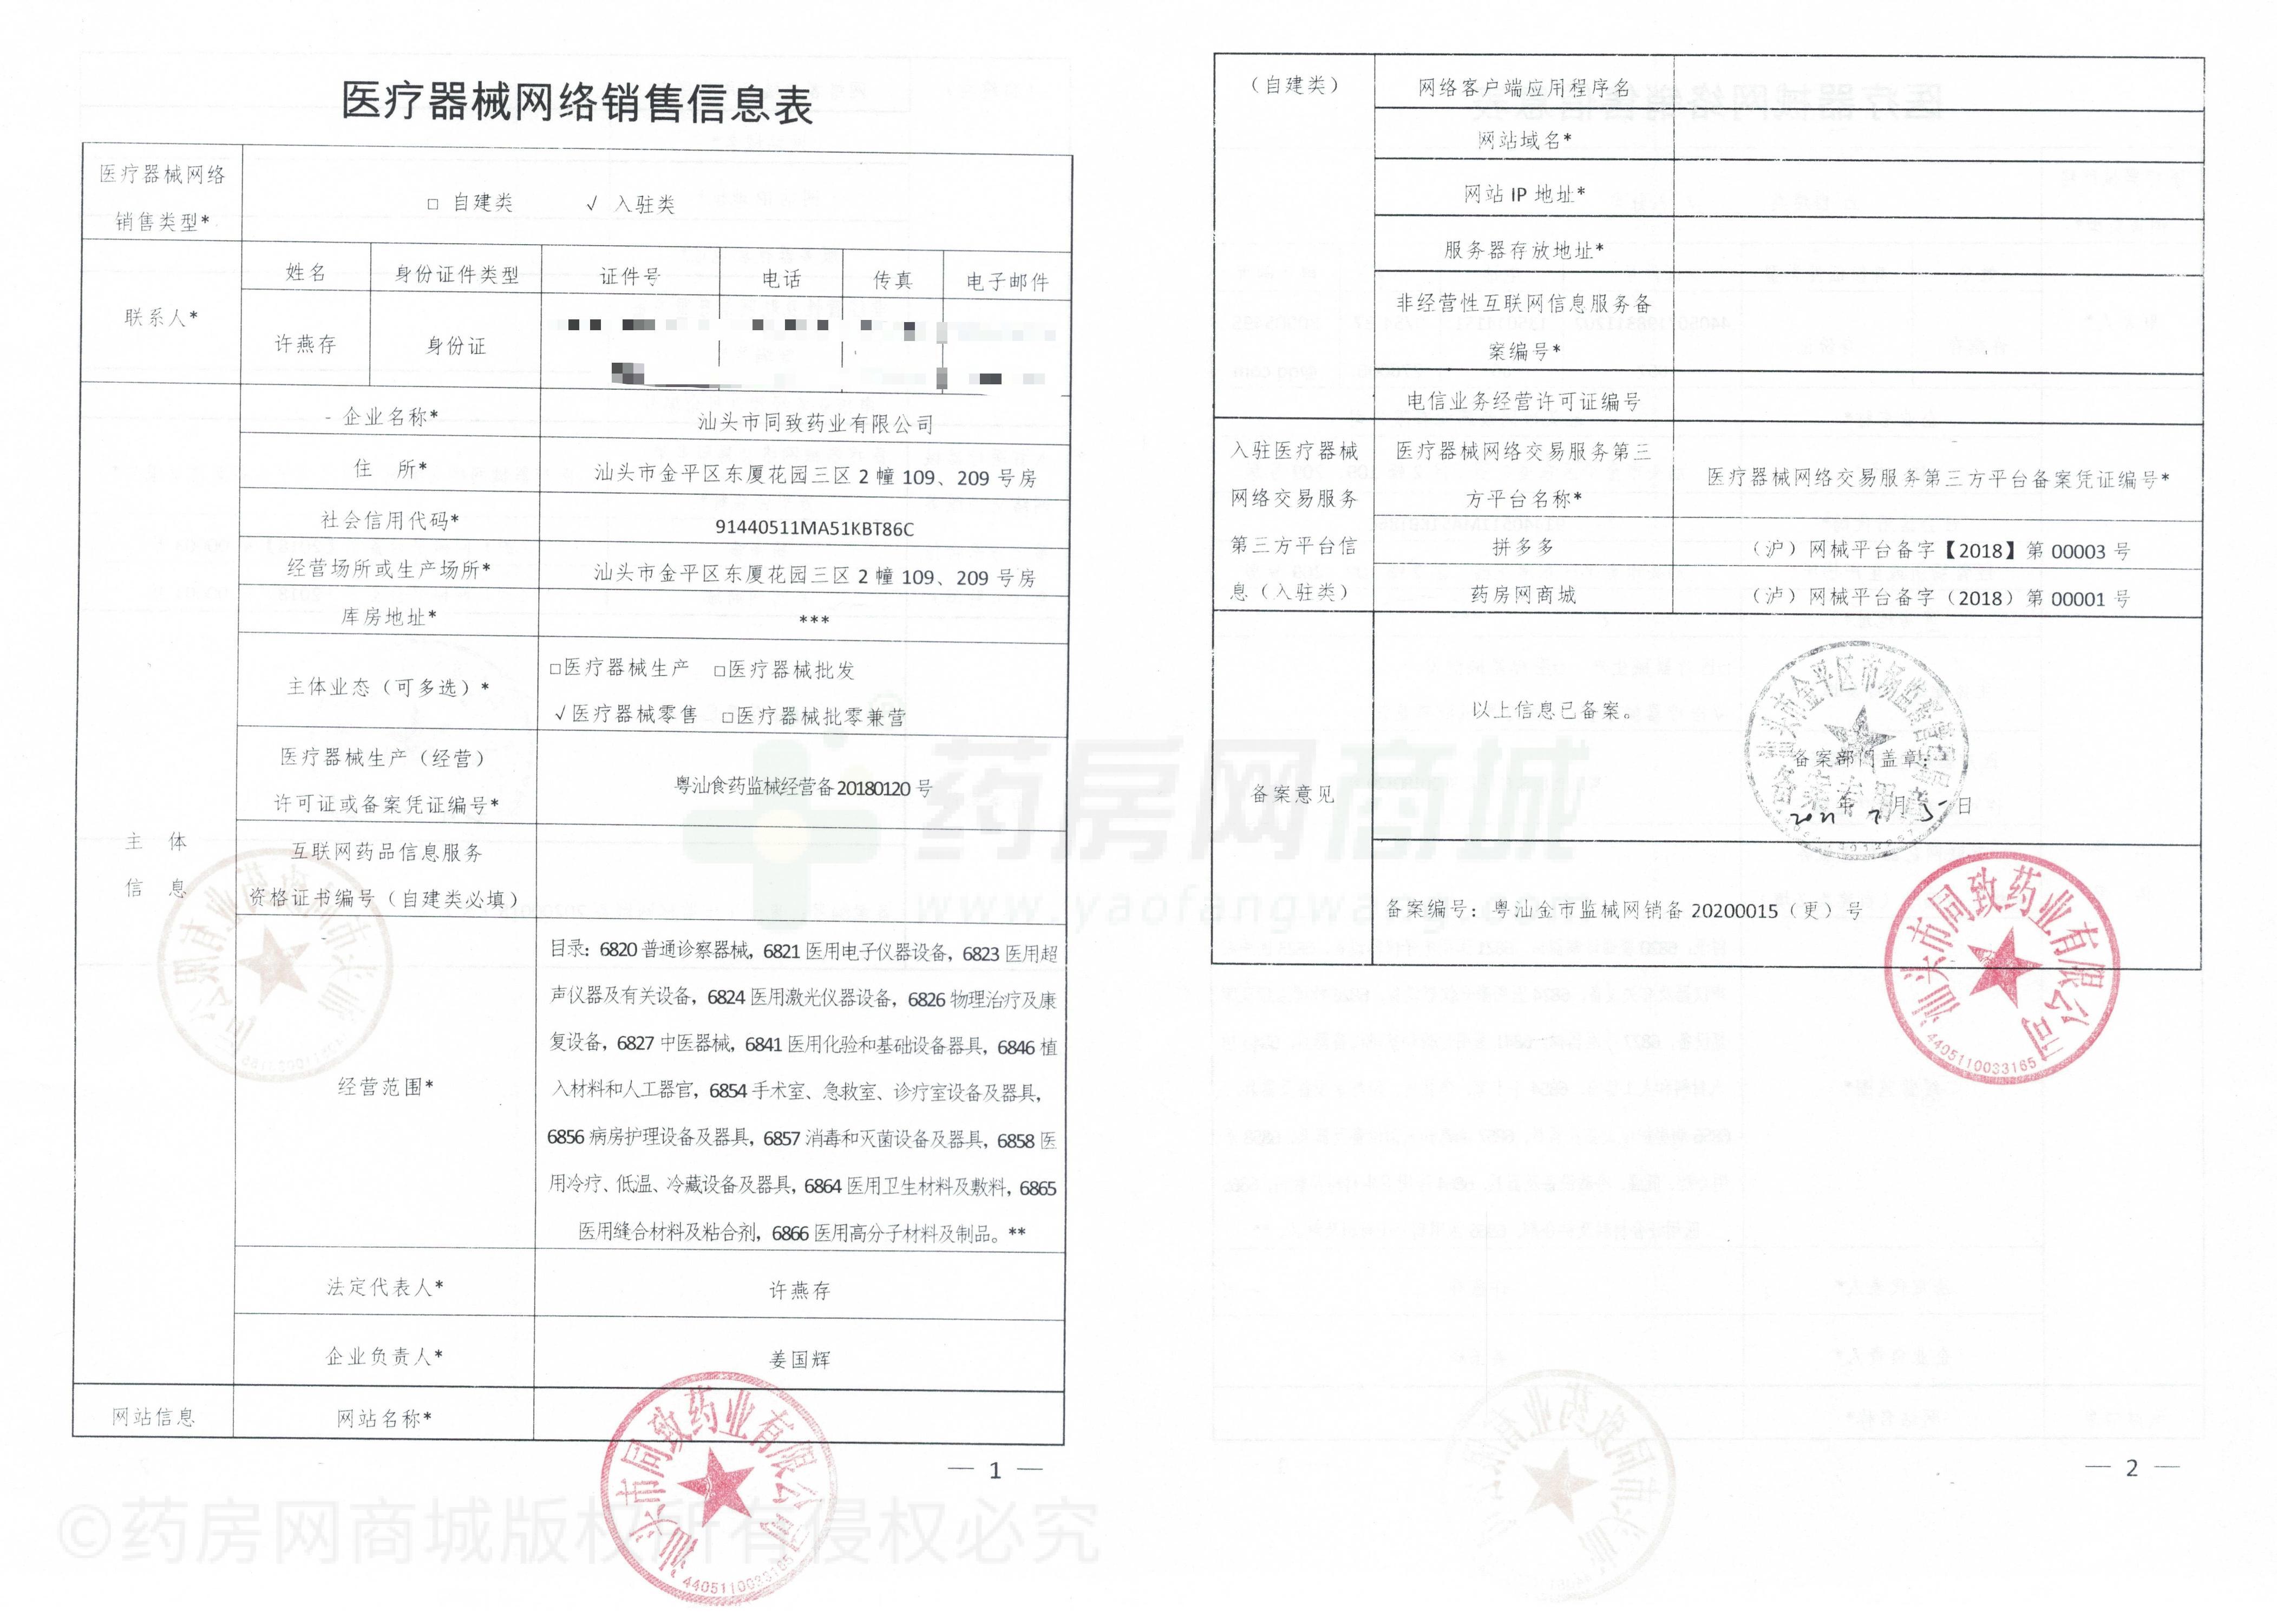 医疗器械网络销售信息表
医疗器械网络
销售类型*
□ 自建类 √ 入驻类
联系人*
姓名 身份证件类型 证件号 电话 传真 电子邮件
许燕存 身份证
主 体
信 息
- 企业名称* 汕头市同致药业有限公司
住 所* 汕头市金平区东厦花园三区 2 幢 109、209 号房
社会信用代码* 91440511MA51KBT86C
经营场所或生产场所* 汕头市金平区东厦花园三区 2 幢 109、209 号房
库房地址* ***
主体业态（可多选）*
□医疗器械生产 □医疗器械批发
√医疗器械零售 □医疗器械批零兼营
医疗器械生产（经营）
许可证或备案凭证编号*
粤汕食药监械经营备 20180120 号
互联网药品信息服务
资格证书编号（自建类必填）
经营范围*
目录：6820 普通诊察器械，6821 医用电子仪器设备，6823 医用超
声仪器及有关设备，6824 医用激光仪器设备，6826 物理治疗及康
复设备，6827 中医器械，6841 医用化验和基础设备器具，6846 植
入材料和人工器官，6854 手术室、急救室、诊疗室设备及器具，
6856 病房护理设备及器具，6857 消毒和灭菌设备及器具，6858 医
用冷疗、低温、冷藏设备及器具，6864 医用卫生材料及敷料，6865
医用缝合材料及粘合剂，6866 医用高分子材料及制品。**
法定代表人* 许燕存
企业负责人* 姜国辉
网站信息 网站名称*
汕头市同致药业有限公司
4405110033165
— 1 —
（自建类） 网络客户端应用程序名
网站域名*
网站 IP 地址*
服务器存放地址*
非经营性互联网信息服务备
案编号*
电信业务经营许可证编号
入驻医疗器械
网络交易服务
第三方平台信
息（入驻类）
医疗器械网络交易服务第三
方平台名称*
医疗器械网络交易服务第三方平台备案凭证编号*
拼多多 （沪）网械平台备字【2018】第 00003 号
药房网商城 （泸）网械平台备字（2018）第 00001 号
备案意见
以上信息已备案。
备案部门盖章：
2021 年 7 月 5 日
汕头市金平区市场监督管理局
备案专用章
备案编号：粤汕金市监械网销备 20200015（更）号
汕头市同致药业有限公司
4405110033165
— 2 —
药房网商城
www.yaofangwang.com
©药房网商城版权所有侵权必究